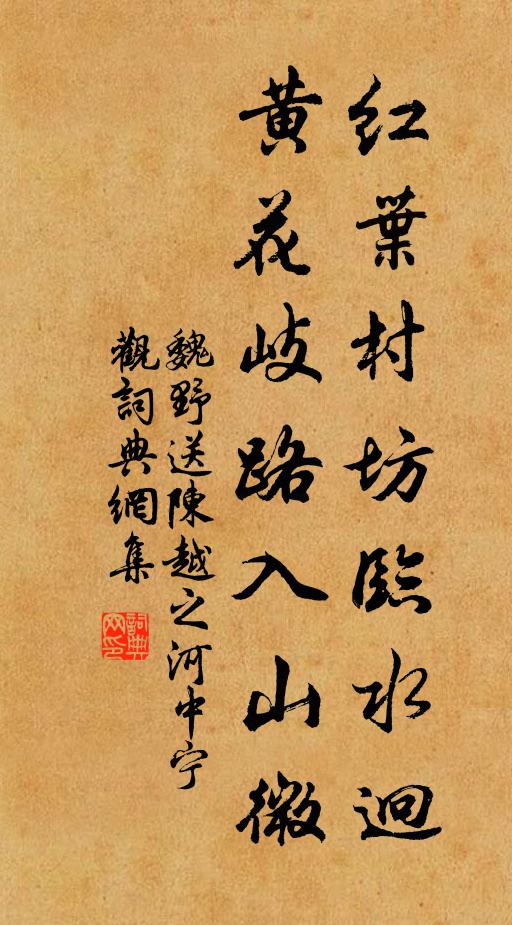 紅葉村坊臨水迥
黃花岐路入山微
魏野送陳越之河中宁
觀詞典網集
詞典网印